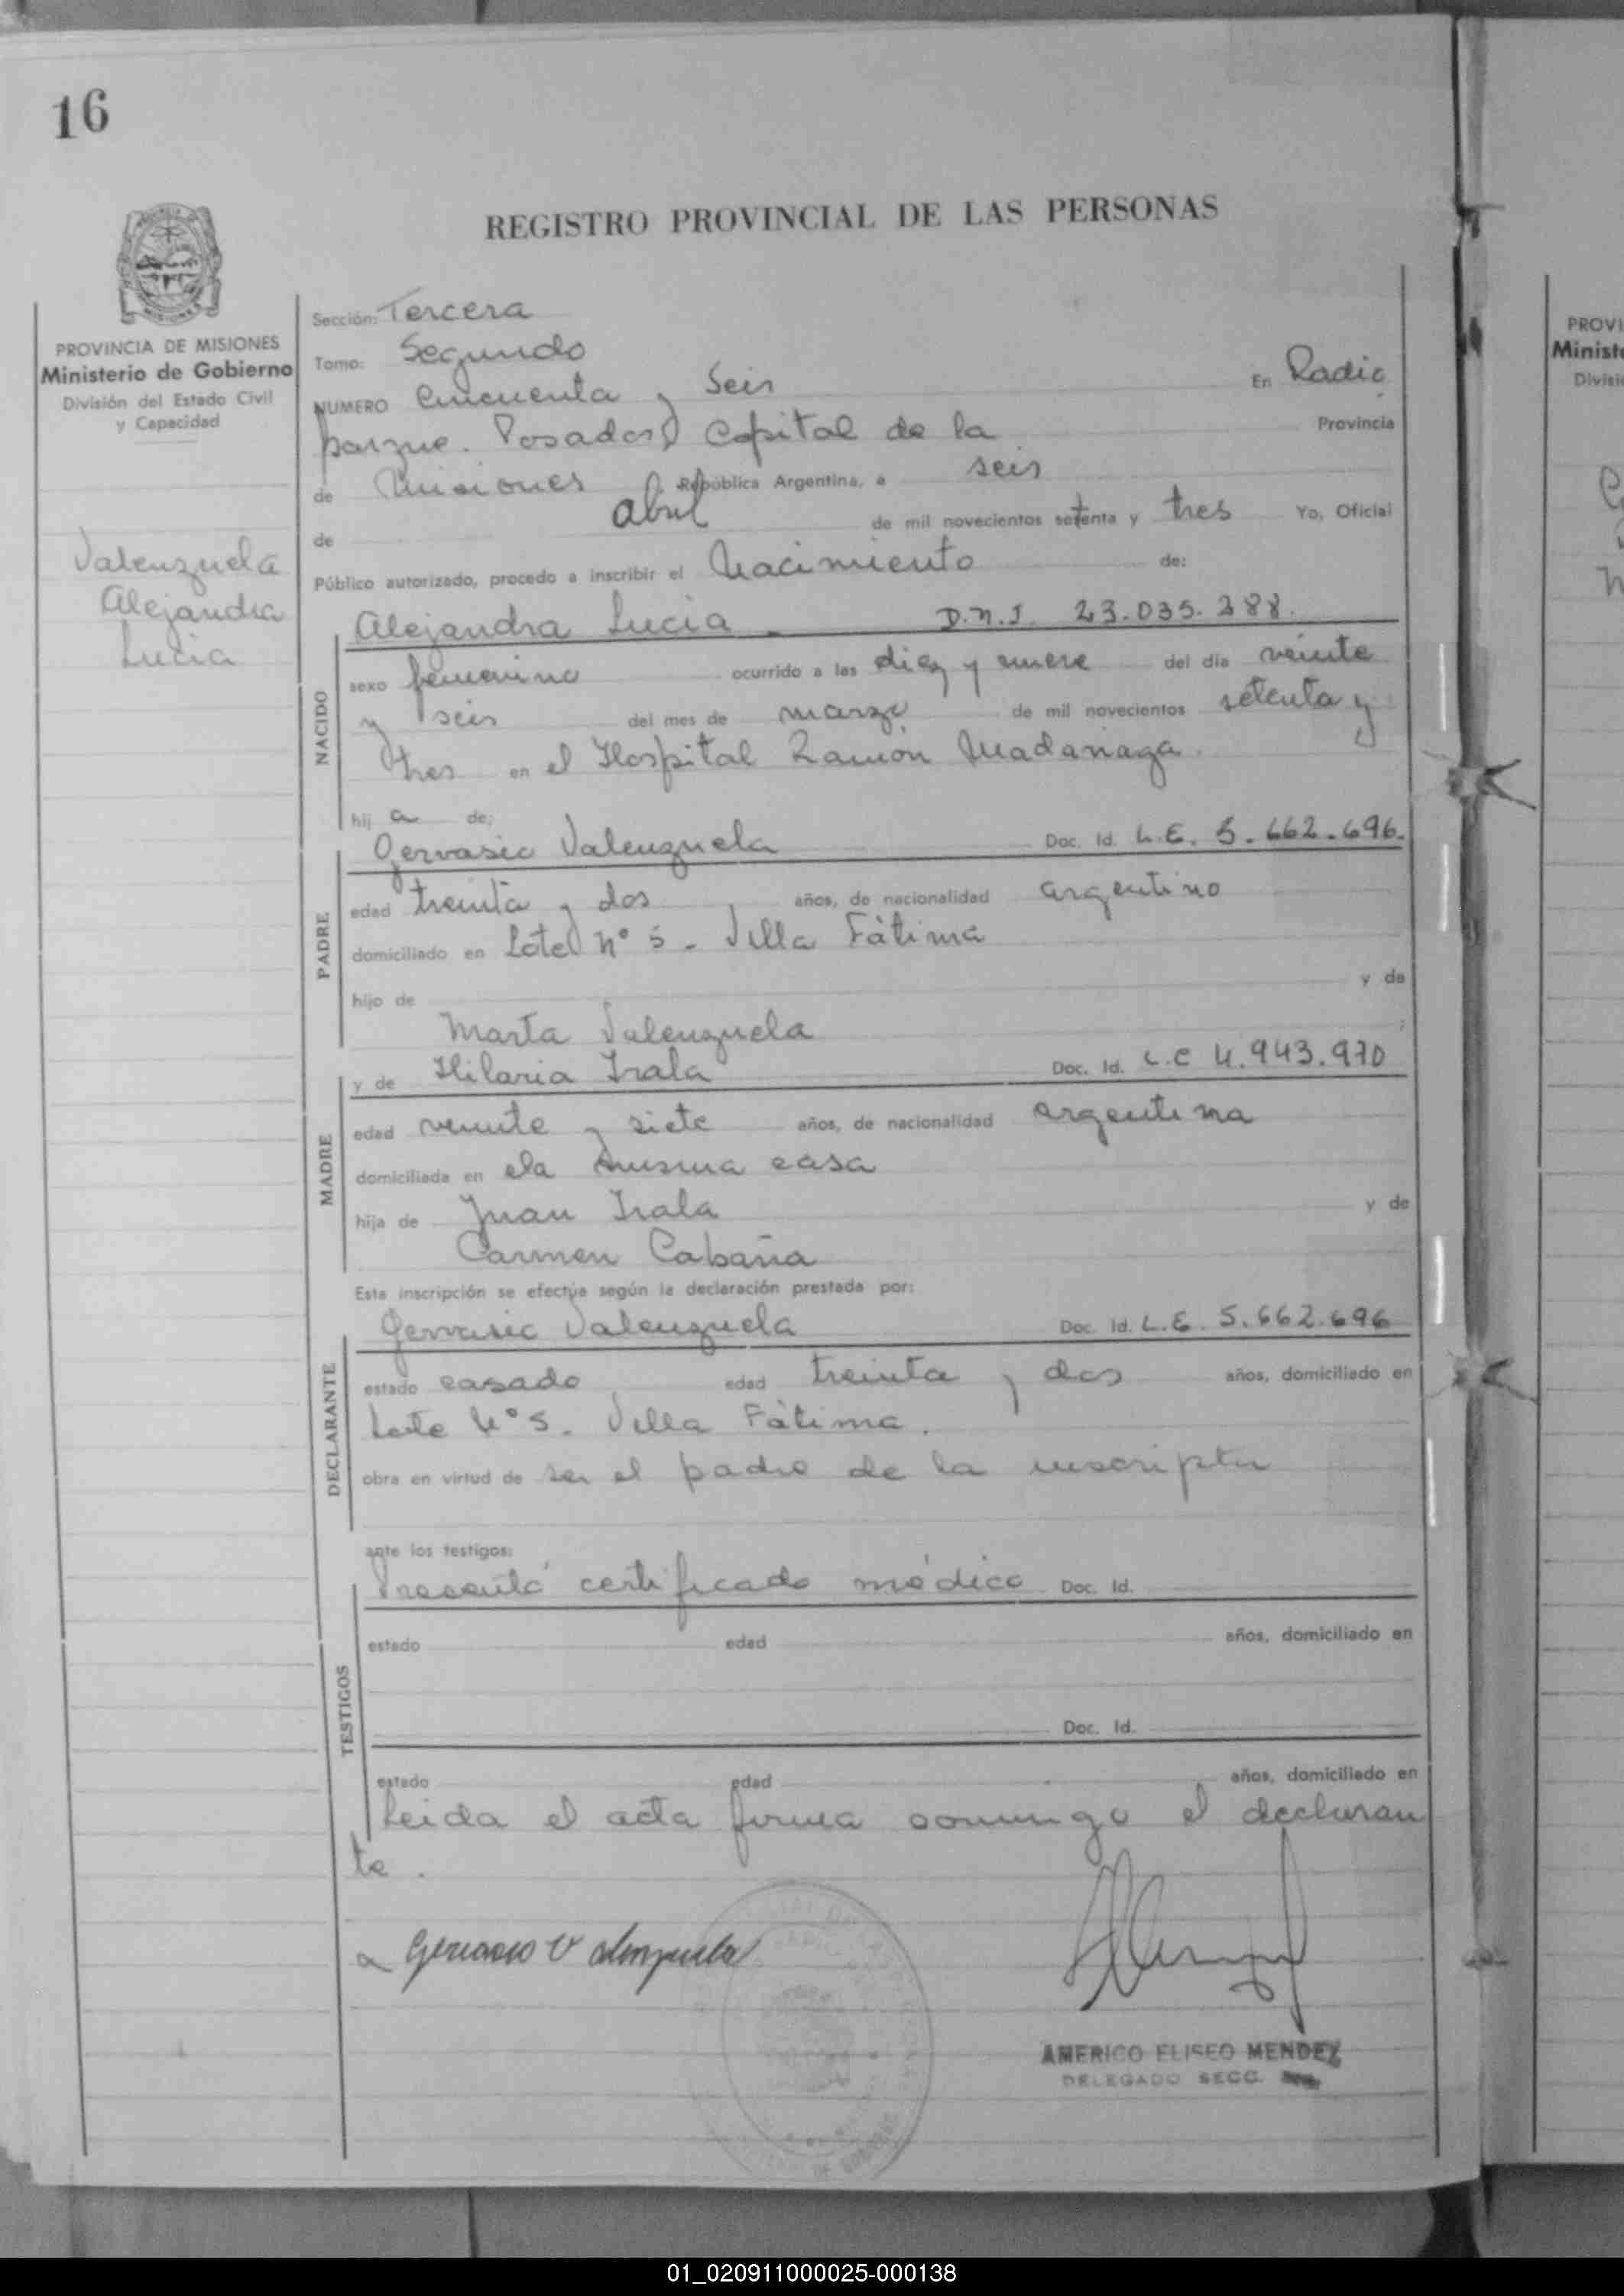 16
REGISTRO PROVINCIAL DE LAS PERSONAS
PROVINCIA DE MISIONES
Ministerio de Gobierno
División del Estado Civil
y Capacidad
Valenzuela
Alejandra
Lucia
Sección: Tercera
Tomo: Segundo
NUMERO Cincuenta y Seis En Radio
parque. Posadas Capital de la Provincia
de Misiones República Argentina, a seis
de abril de mil novecientos setenta y tres Yo, Oficial
Público autorizado, procedo a inscribir el Nacimiento de:
Alejandra Lucia D.N.I. 23.035.288.
NACIDO
sexo femenino ocurrido a las diez y nueve del día veinte
y seis del mes de marzo de mil novecientos setenta y
tres en el Hospital Ramón Madariaga.
hij a de:
Gervasio Valenzuela Doc. Id. L.E. 5.662.696.
PADRE
edad treinta y dos años, de nacionalidad argentino
domiciliado en Lote Nº 5 - Villa Fátima
hijo de y de
Marta Valenzuela
y de Hilaria Irala Doc. Id. L.C 4.943.970
MADRE
edad veinte y siete años, de nacionalidad argentina
domiciliada en la misma casa
hija de Juan Irala y de
Carmen Cabaña
Esta inscripción se efectúa según la declaración prestada por:
Gervasio Valenzuela Doc. Id. L.E. 5.662.696
DECLARANTE
estado casado edad treinta y dos años, domiciliado en
Lote Nº 5. Villa Fátima.
obra en virtud de ser el padre de la inscripta
ante los testigos:
Presentó certificado médico Doc. Id.
TESTIGOS
estado edad años, domiciliado en
Doc. Id.
estado edad años, domiciliado en
Leida el acta firma conmigo el declaran
te.
Gervasio Valenzuela
AMERICO ELISEO MENDEZ
DELEGADO SECC.
PROVI
Ministe
Divisi
01_020911000025-000138